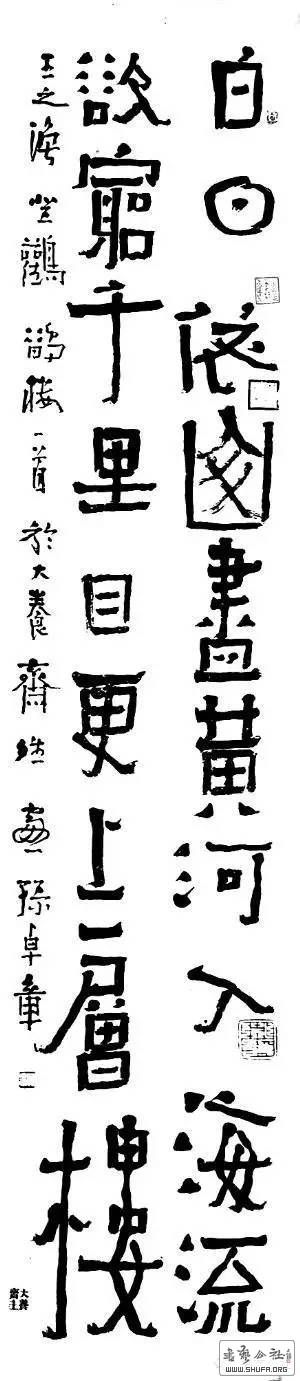 白日依山盡黃河入海流
欲窮千里目更上一層樓
王之渙登鸛鵲樓一首於大養齋孫卓章
大養
齋主
書藝公社
WWW.SHUFA.ORG